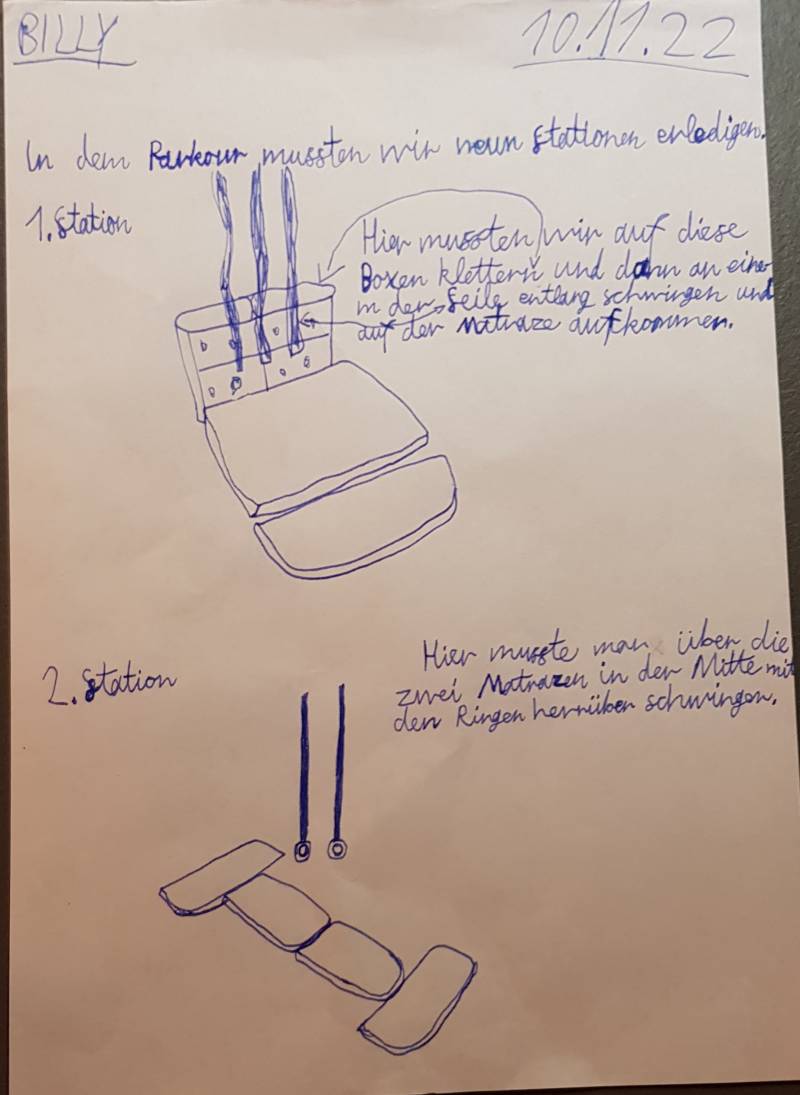 BILLY
10.11.22
In dem Parkour mussten wir neun Stationen erledigen.
1. Station
Hier mussten wir auf diese
Boxen klettern und dann an eine
m der Seile entlang schwingen und
auf der Matraze aufkommen.
2. Station
Hier musste man über die
zwei Matrazen in der Mitte mit
den Ringen herrüber schwingen.